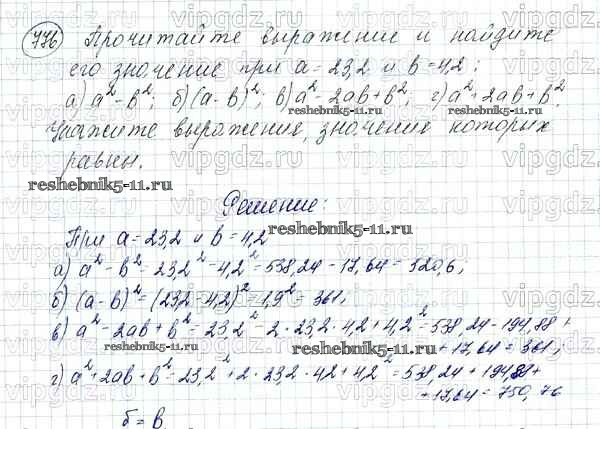 776 Прочитайте выражение и найдите
его значение при a = 23,2 и b = 4,2;
а) a² - b²; б) (a - b)²; в) a² - 2ab + b²; г) a² + 2ab + b².
Укажите выражение, значение которых
равны.
reshebnik5-11.ru
Решение:
При a = 23,2 и b = 4,2
а) a² - b² = 23,2² - 4,2² = 538,24 - 17,64 = 520,6;
б) (a - b)² = (23,2 - 4,2)² = 19² = 361;
в) a² - 2ab + b² = 23,2² - 2 · 23,2 · 4,2 + 4,2² = 538,24 - 194,88 +
+ 17,64 = 361;
г) a² + 2ab + b² = 23,2² + 2 · 23,2 · 4,2 + 4,2² = 538,24 + 194,88 +
+ 17,64 = 750,76
б = в